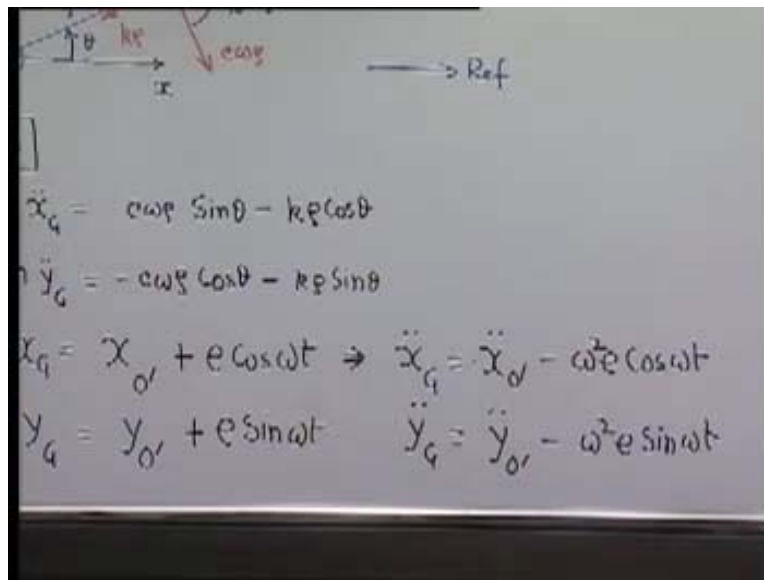 θ kρ cωρ
x → Ref
ẍ_G = cωρ Sinθ − kρ Cosθ
ÿ_G = − cωρ Cosθ − kρ Sinθ
x_G = x_O' + e Cosωt → ẍ_G = ẍ_O' − ω²e Cosωt
y_G = y_O' + e Sinωt ÿ_G = ÿ_O' − ω²e Sinωt